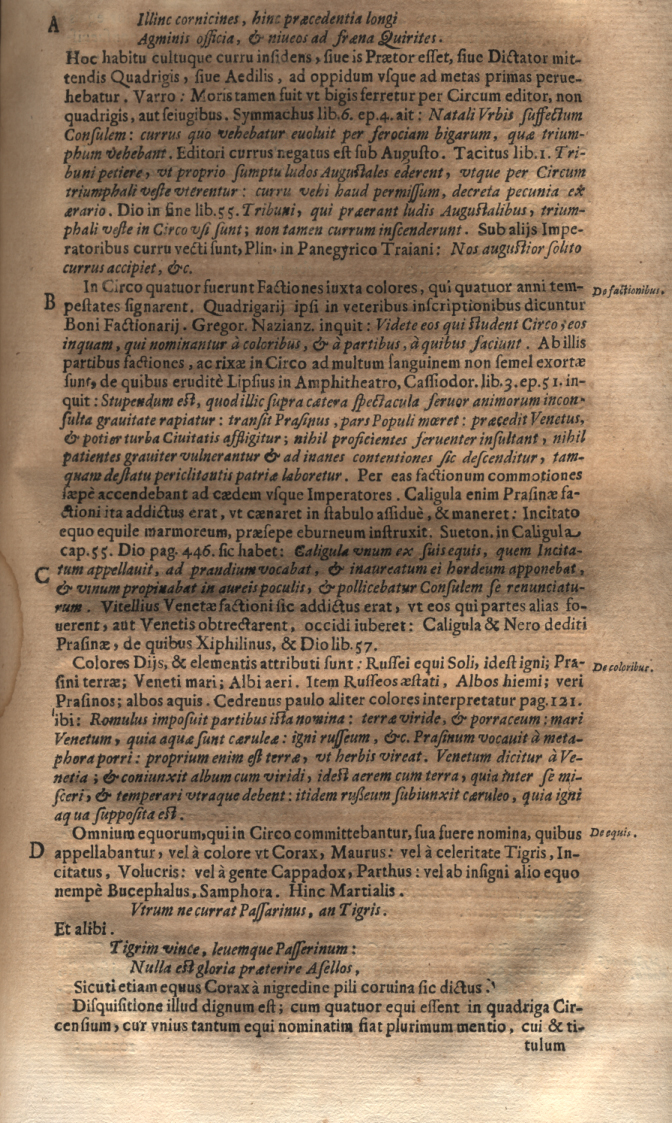 A
Illinc cornicines, hinc præcedentia longi
Agminis officia, & niueos ad fræna Quirites.
Hoc habitu cultuque curru insidens, siue is Prætor esset, siue Dictator mit-
tendis Quadrigis, siue Aedilis, ad oppidum vsque ad metas primas perue-
hebatur. Varro: Moris tamen fuit vt bigis ferretur per Circum editor, non
quadrigis, aut seiugibus. Symmachus lib.6. ep.4. ait: Natali Vrbis suffectum
Consulem: currus quo vehebatur euoluit per ferociam bigarum, quæ trium-
phum vehebant. Editori currus negatus est sub Augusto. Tacitus lib.1. Tri-
buni petiere, vt proprio sumptu ludos Augustales ederent, vtque per Circum
triumphali veste vterentur: curru vehi haud permissum, decreta pecunia ex
ærario. Dio in fine lib.55. Tribuni, qui præerant ludis Augustalibus, trium-
phali veste in Circo vsi sunt; non tamen currum inscenderunt. Sub alijs Impe-
ratoribus curru vecti sunt, Plin. in Panegyrico Traiani: Nos augustior solito
currus accipiet, &c.
In Circo quatuor fuerunt Factiones iuxta colores, qui quatuor anni tem-
De factionibus.
B
pestates signarent. Quadrigarij ipsi in veteribus inscriptionibus dicuntur
Boni Factionarij. Gregor. Nazianz. inquit: Videte eos qui student Circo, eos
inquam, qui nominantur à coloribus, & à partibus, à quibus faciunt. Ab illis
partibus factiones, ac rixæ in Circo ad multum sanguinem non semel exortæ
sunt, de quibus eruditè Lipsius in Amphitheatro, Cassiodor. lib.3. ep.51. in-
quit: Stupendum est, quod illic supra cætera spectacula feruor animorum incon-
sulta grauitate rapiatur: transit Prasinus, pars Populi mæret: præcedit Venetus,
& potier turba Ciuitatis affligitur; nihil proficientes feruenter insultant, nihil
patientes grauiter vulnerantur & ad inanes contentiones sic descenditur, tam-
quam de statu periclitantis patriæ laboretur. Per eas factionum commotiones
sæpè accendebant ad cædem vsque Imperatores. Caligula enim Prasinæ fa-
ctioni ita addictus erat, vt cænaret in stabulo assiduè, & maneret: Incitato
equo equile marmoreum, præsepe eburneum instruxit. Sueton. in Caligula
cap.55. Dio pag. 446. sic habet: Caligula vnum ex suis equis, quem Incita-
C
tum appellauit, ad prandium vocabat, & inaureatum ei hordeum apponebat,
& vinum propinabat in aureis poculis, & pollicebatur Consulem se renunciatu-
rum. Vitellius Venetæ factioni sic addictus erat, vt eos qui partes alias fo-
uerent, aut Venetis obtrectarent, occidi iuberet: Caligula & Nero dediti
Prasinæ, de quibus Xiphilinus, & Dio lib.57.
Colores Dijs, & elementis attributi sunt: Russei equi Soli, idest igni; Pra-
De coloribus.
sini terræ; Veneti mari; Albi aeri. Item Russeos æstati, Albos hiemi; veri
Prasinos; albos aquis. Cedrenus paulo aliter colores interpretatur pag.121.
ibi: Romulus imposuit partibus ista nomina: terræ viride, & porraceum: mari
Venetum, quia aquæ sunt cæruleæ: igni russeum, &c. Prasinum vocauit à meta-
phora porri: proprium enim est terræ, vt herbis vireat. Venetum dicitur à Ve-
netia; & coniunxit album cum viridi, idest aerem cum terra, quia inter se mi-
sceri, & temperari vtraque debent: itidem rußeum subiunxit cæruleo, quia igni
aqua supposita est.
Omnium equorum, qui in Circo committebantur, sua fuere nomina, quibus
De equis.
D
appellabantur, vel à colore vt Corax, Maurus: vel à celeritate Tigris, In-
citatus, Volucris: vel à gente Cappadox, Parthus: vel ab insigni alio equo
nempè Bucephalus, Samphora. Hinc Martialis.
Vtrum ne currat Passarinus, an Tigris.
Et alibi.
Tigrim vince, leuemque Passerinum:
Nulla est gloria præterire Asellos,
Sicuti etiam equus Corax à nigredine pili coruina sic dictus.
Disquisitione illud dignum est; cum quatuor equi essent in quadriga Cir-
censium, cur vnius tantum equi nominatim fiat plurimum mentio, cui & ti-
tulum